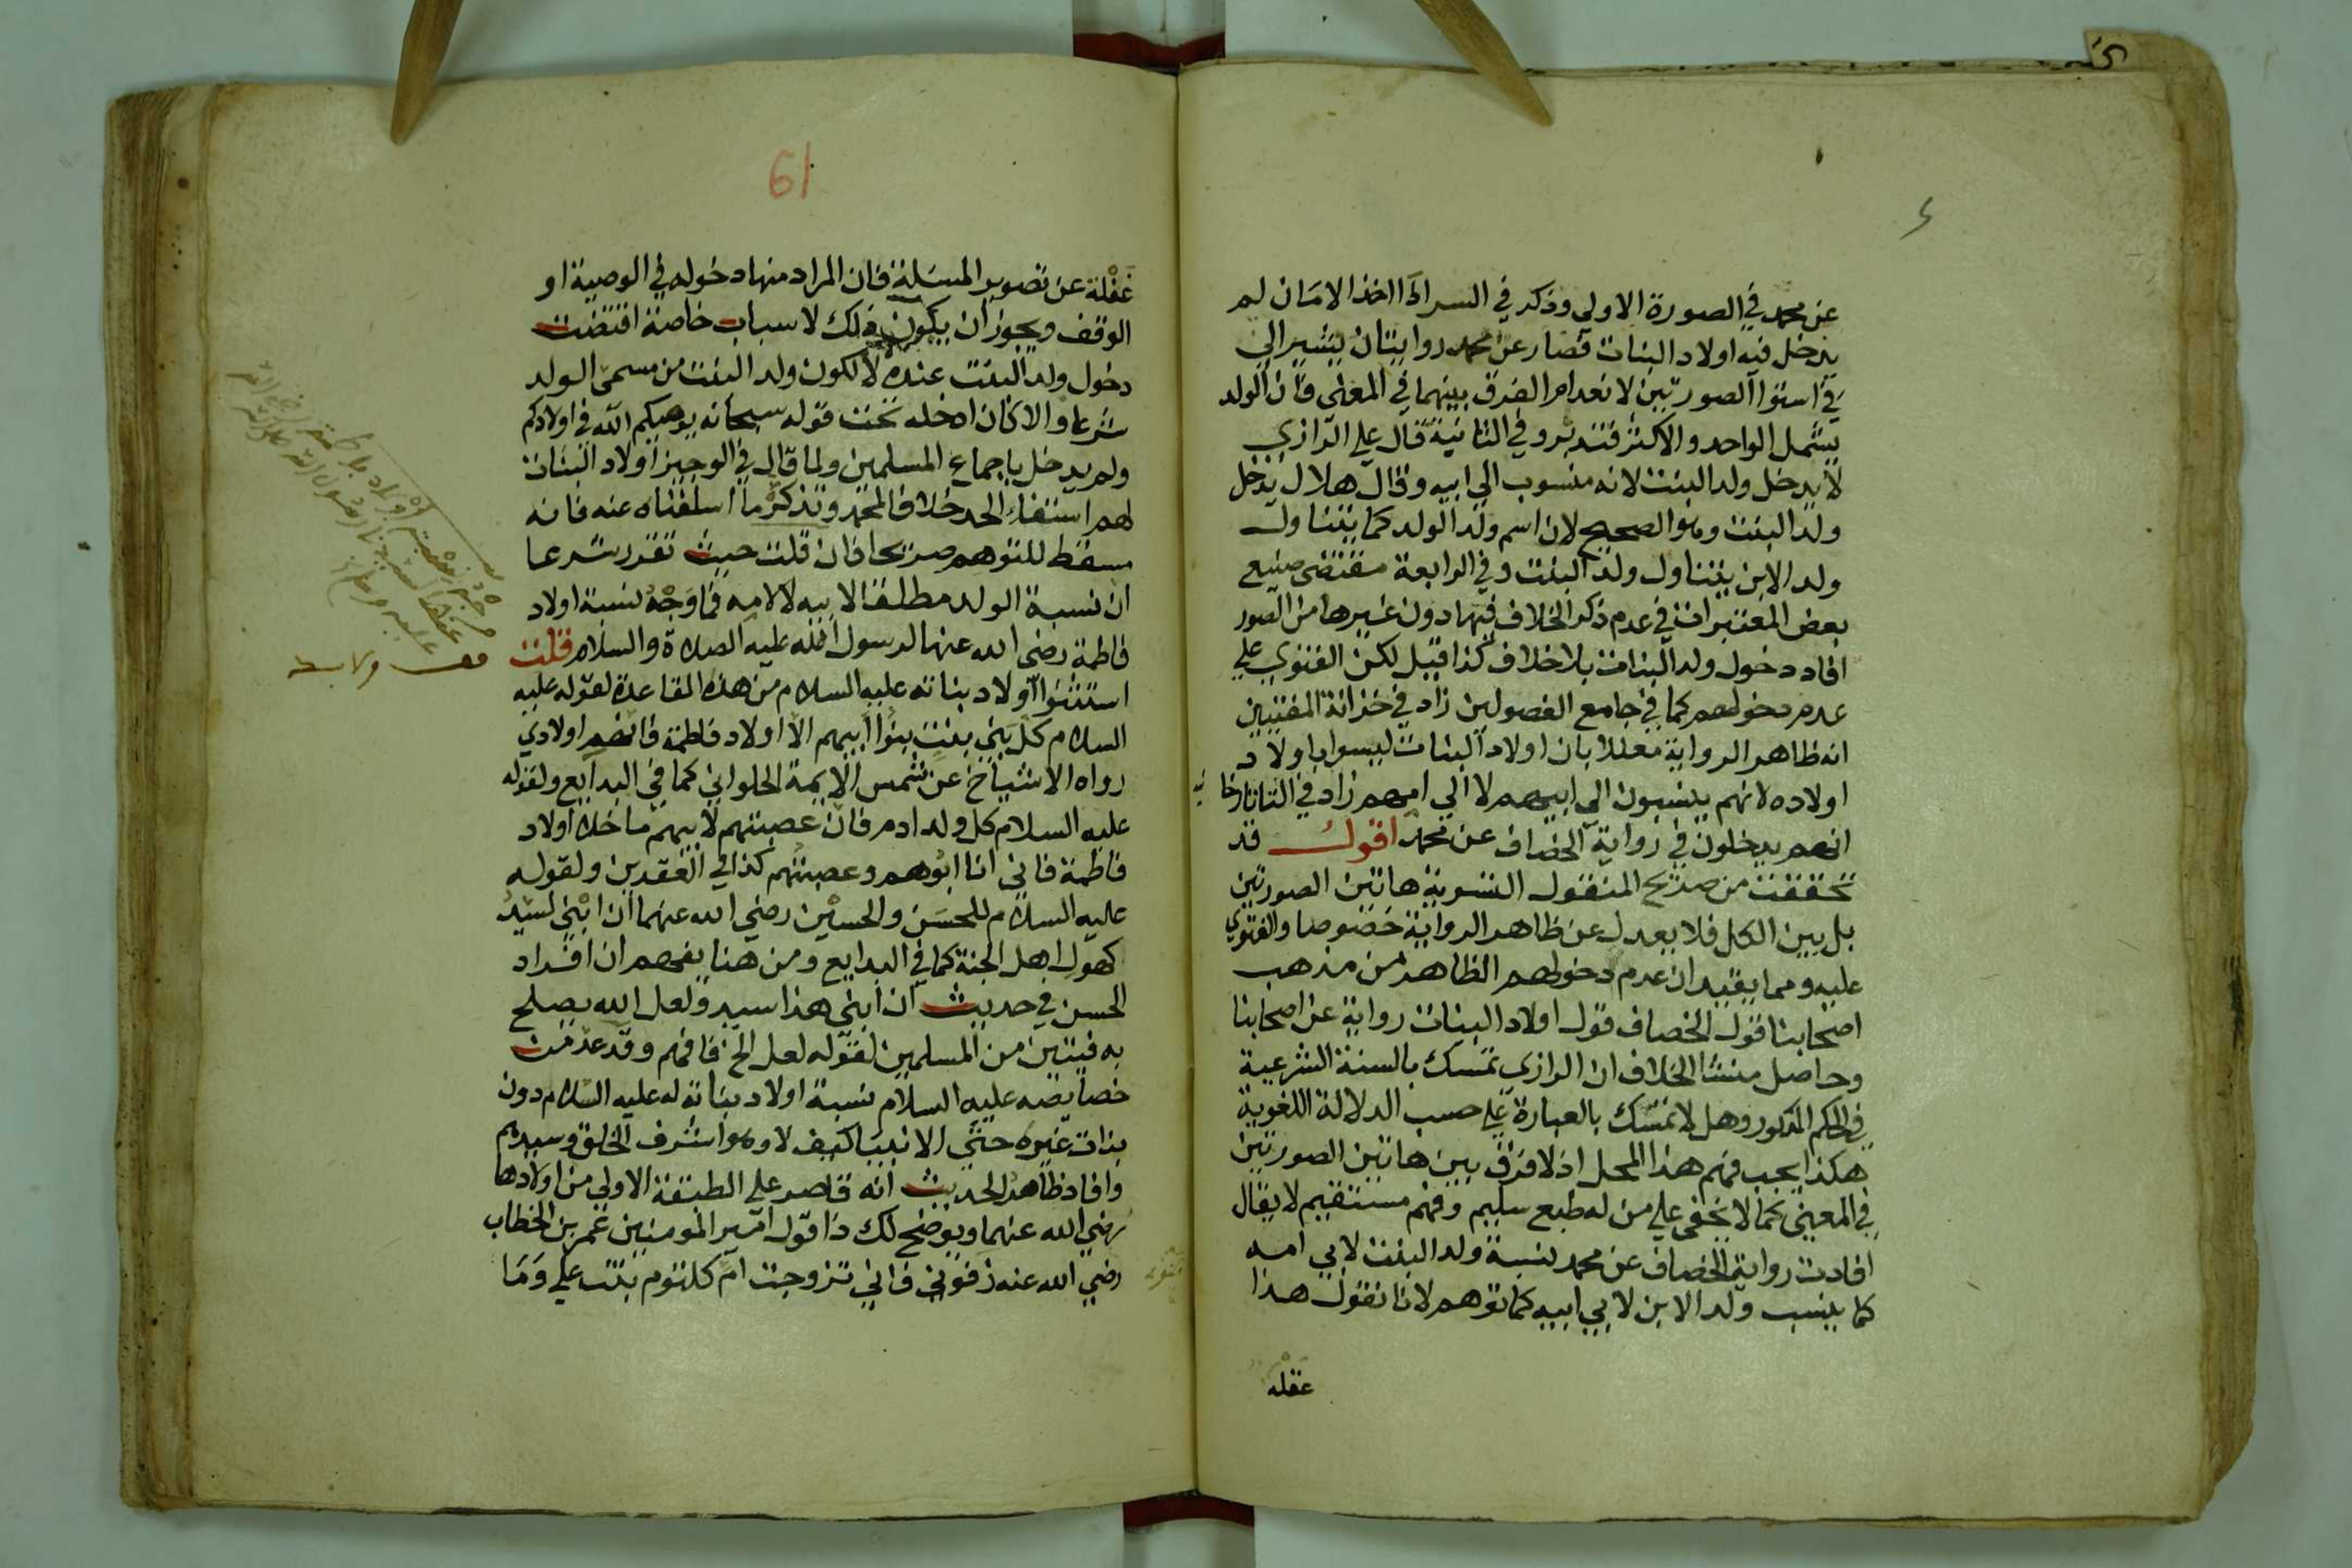 عن محمد في الصورة الاولى وذكر في السير اذا اخذ الامان لم
يدخل فيه اولاد البنات فصار عن محمد روايتان يشير الى
في استوا الصورتين لانعدام الفرق بينهما في المعنى فان الولد
يشمل الواحد والاكثر فتدبر وفي الثانية قال علي الرازي
لا يدخل ولد البنت لانه منسوب الى ابيه وقال هلال يدخل
ولد البنت وهو الصحيح لان اسم ولد الولد كما يتناول
ولد الابن يتناول ولد البنت وفي الرابعة مقتضى صنيع
بعض المعتبرات في عدم ذكر الخلاف فيها دون غيرها من الصور
افاد دخول ولد البنات بلا خلاف كذا قيل لكن الفتوى على
عدم دخولهم كما في جامع الفصولين زاد في خزانة المفتيين
انه ظاهر الرواية معللا بان اولاد البنات ليسوا باولاد
اولاده لانهم ينسبون الى ابيهم لا الى امهم زاد في التاتارخا نيه
انهم يدخلون في رواية الخصاف عن محمد اقول قد
تحققت من صريح المنقول التسوية هاتين الصورتين
بل بين الكل فلا يعدل عن ظاهر الرواية خصوصا والفتوى
عليه ومما يفيد ان عدم دخولهم الظاهر من مذهب
اصحابنا قول الخصاف قول اولاد البنات رواية عن اصحابنا
وحاصل منشا الخلاف ان الرازي تمسك بالسنة الشرعية
في الحكم المذكور وهلال تمسك بالعبارة على حسب الدلالة اللغوية
هكذا يجب فهم هذا المحل اذ لا فرق بين هاتين الصورتين
في المعنى كما لا يخفى على من له طبع سليم وفهم مستقيم لا يقال
افادت رواية الخصاف عن محمد نسبة ولد البنت لابي امه
كما ينسب ولد الابن لابي ابيه كما توهم لانا نقول هذا
غفلة
61
غفلة عن تصوير المسئلة فان المراد منها دخوله في الوصية او
الوقف ويجوز ان يكون ذلك لاسباب خاصة اقتضت
دخول ولد البنت عنده لا لكون ولد البنت من مسمى الولد
شرعا والا لكان ادخله تحت قوله سبحانه يوصيكم الله في اولادكم
ولم يدخل باجماع المسلمين ولما قال في الوجيز اولاد البنات
لهم استنفاء الحد خلافا لمحمد وتذكر ما اسلفناه عنه فانه
مسقط للتوهم صريحا فان قلت حيث تقرر شرعا
ان نسبة الولد مطلقا لابيه لا لامه فما وجه نسبة اولاد
فاطمة رضي الله عنها لرسول الله عليه الصلاة والسلام قلت
استثنوا اولاد بناته عليه السلام من هذه القاعدة لقوله عليه
السلام كل بني بنت بنوا ابيهم الا اولاد فاطمة فانهم اولادي
رواه الاشياخ عن شمس الايمة الحلواني كما في البدايع ولقوله
عليه السلام كل ولد ادم فان عصبتهم لابيهم ما خلا اولاد
فاطمة فاني انا ابوهم وعصبتهم كذا في العقدين ولقوله
عليه السلام للحسن والحسين رضي الله عنهما ان ابني لسيد
كهول اهل الجنة كما في البدايع ومن هنا يفهم ان افراد
الحسن في حديث ان ابني هذا سيد ولعل الله يصلح
به فيتين من المسلمين لقوله لعل الخ فافهم وقد عد من
خصايصه عليه السلام نسبة اولاد بناته له عليه السلام دون
بنات غيره حتى الانبيا كيف لا وهو اشرف الخلق وسيدهم
وافاد ظاهر الحديث انه قاصر على الطبقة الاولى من اولادها
رضي الله عنهما ويوضح لك ذا قول امير المومنين عمر بن الخطاب
رضي الله عنه زفوني فاني تزوجت ام كلثوم بنت علي وما